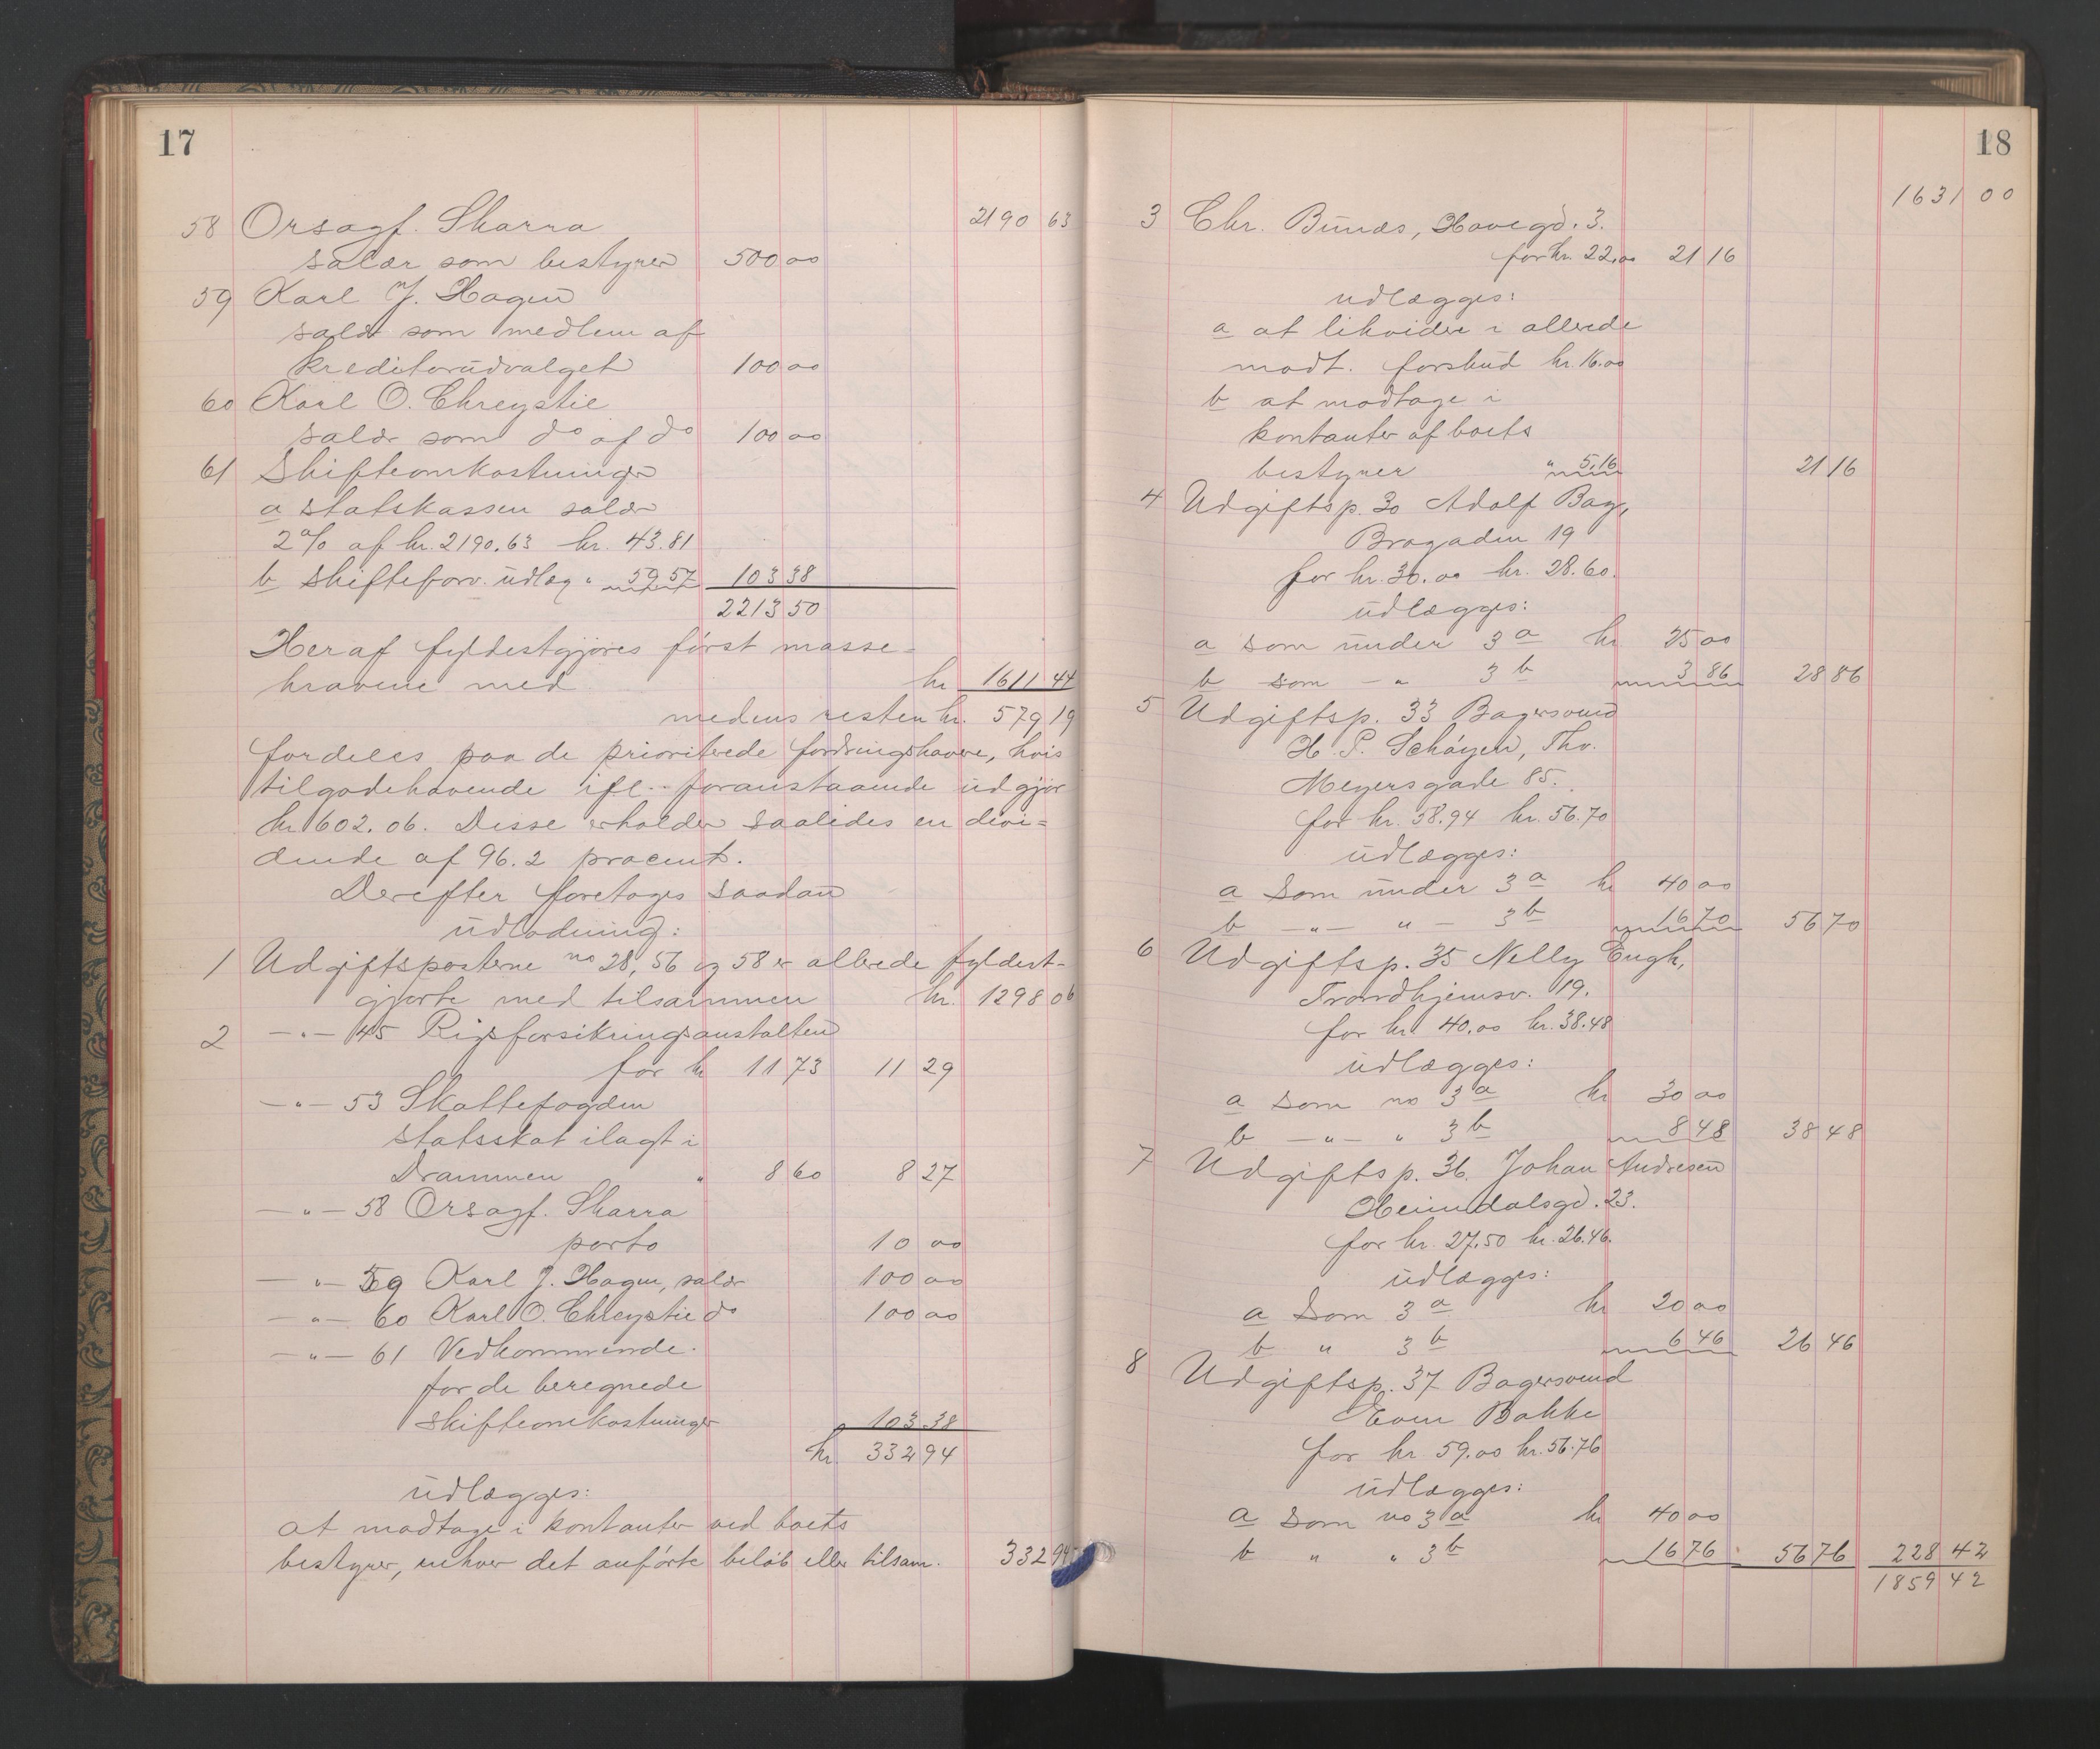 17
58 Orsagf. Skarra 2190 63
salær som bestyrer 500 00
59 Karl J. Hagen
salær som medlem af
kreditorudvalget 100 00
60 Karl O. Chrystie
salær som do af do 100 00
61 Skifteomkostninger
a statskassen salær
2% af kr. 2190.63 kr. 43.81
b skifteforv. udlæg " 59.57 103 38
2213 50
Heraf fyldestgjøres først masse-
kravene med kr 1611 44
medens resten kr. 579 19
fordeles paa de prioriterede fordringshavere, hvis
tilgodehavende ifl. foranstaaende udgjør
kr 602.06. Disse erholder saaledes en divi=
dende af 96.2 procent.
Derefter foretages saadan
udlodning:
1 Udgiftsposterne no 28, 56 og 58 er allerede fyldest-
gjorte med tilsammen kr. 1298 06
2 —"— 45 Rigsforsikringsanstalten
for kr 11 73 11 29
—"— 53 Skattefogden
statsskat ilagt i
Drammen " 8 60 8 27
—"— 58 Orsagf. Skarra
porto 10 00
—"— 59 Karl J. Hagen, salær 100 00
—"— 60 Karl O. Chrystie do 100 00
—"— 61 Vedkommende
for de beregnede
skifteomkostninger 103 38
kr 332 94
udlægges:
at modtage i kontanter ved boets
bestyrer, enhver det anførte beløb eller tilsam. 332 94
18
1631 00
3 Chr. Bunæs, Havegd. 3.
for kr. 22.00 21 16
udlægges:
a at likvidere i allerede
modt. forskud kr. 16.00
b at modtage i
kontanter af boets
bestyrer " 5.16 21 16
4 Udgiftsp. 30 Adolf Bay,
Brogaden 19
for kr. 30.00 kr. 28.60.
udlægges:
a som under 3 a kr 25 00
b som —"— 3 b 3 86 28 86
5 Udgiftsp. 33 Bagersvend
H. P. Schøyen, Thv.
Meyersgade 85.
for kr. 58.94 kr. 56.70
udlægges:
a som under 3 a kr 40 00
b —"— " — 3 b 16 70 56 70
6 Udgiftsp. 35 Nelly Engh,
Trondhjemsv. 19.
for kr 40.00 kr. 38.48
udlægges:
a som no 3 a kr 30 00
b —"— " 3 b 8 48 38 48
7 Udgiftsp. 36. Johan Andresen
Heimdalsgd. 23.
for kr. 27.50 kr. 26.46.
udlægges:
a som 3 a kr 20 00
b " 3 b 6 46 26 46
8 Udgiftsp. 37 Bagersvend
Even Bakke
for kr 59.00 kr. 56.76
udlægges:
a som no 3 a kr 40 00
b " " 3 b 16 76 56 76 228 42
1859 42